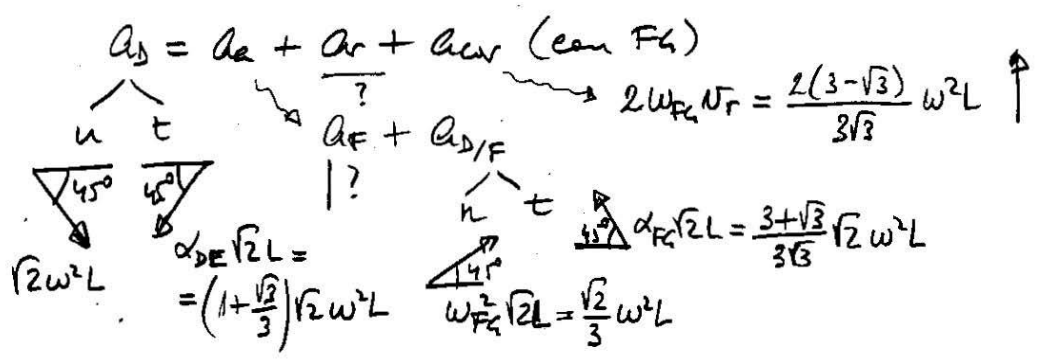 a_D = a_a + a_r + a_cor (con FG)
?
2ω_FG v_r = 2(3-√3)/3√3 ω²L ↑
n t
a_F + a_D/F
| ?
45° 45°
n t
√2ω²L
α_DE √2L =
= (1+√3/3)√2 ω²L
45°
ω²_FG √2L = √2/3 ω²L
45° α_FG √2L = 3+√3/3√3 √2 ω²L